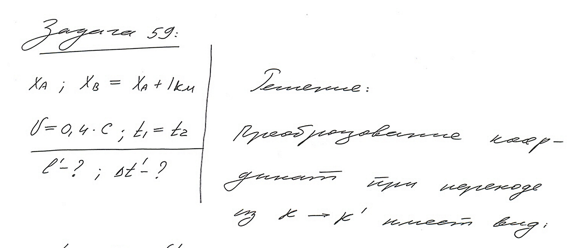 Задача 59:
xA ; xB = xA + 1км
V = 0,4·c ; t1 = t2
l' - ? ; Δt' - ?
Решение:
Преобразование коор-
динат при переходе
из K → K' имеет вид: